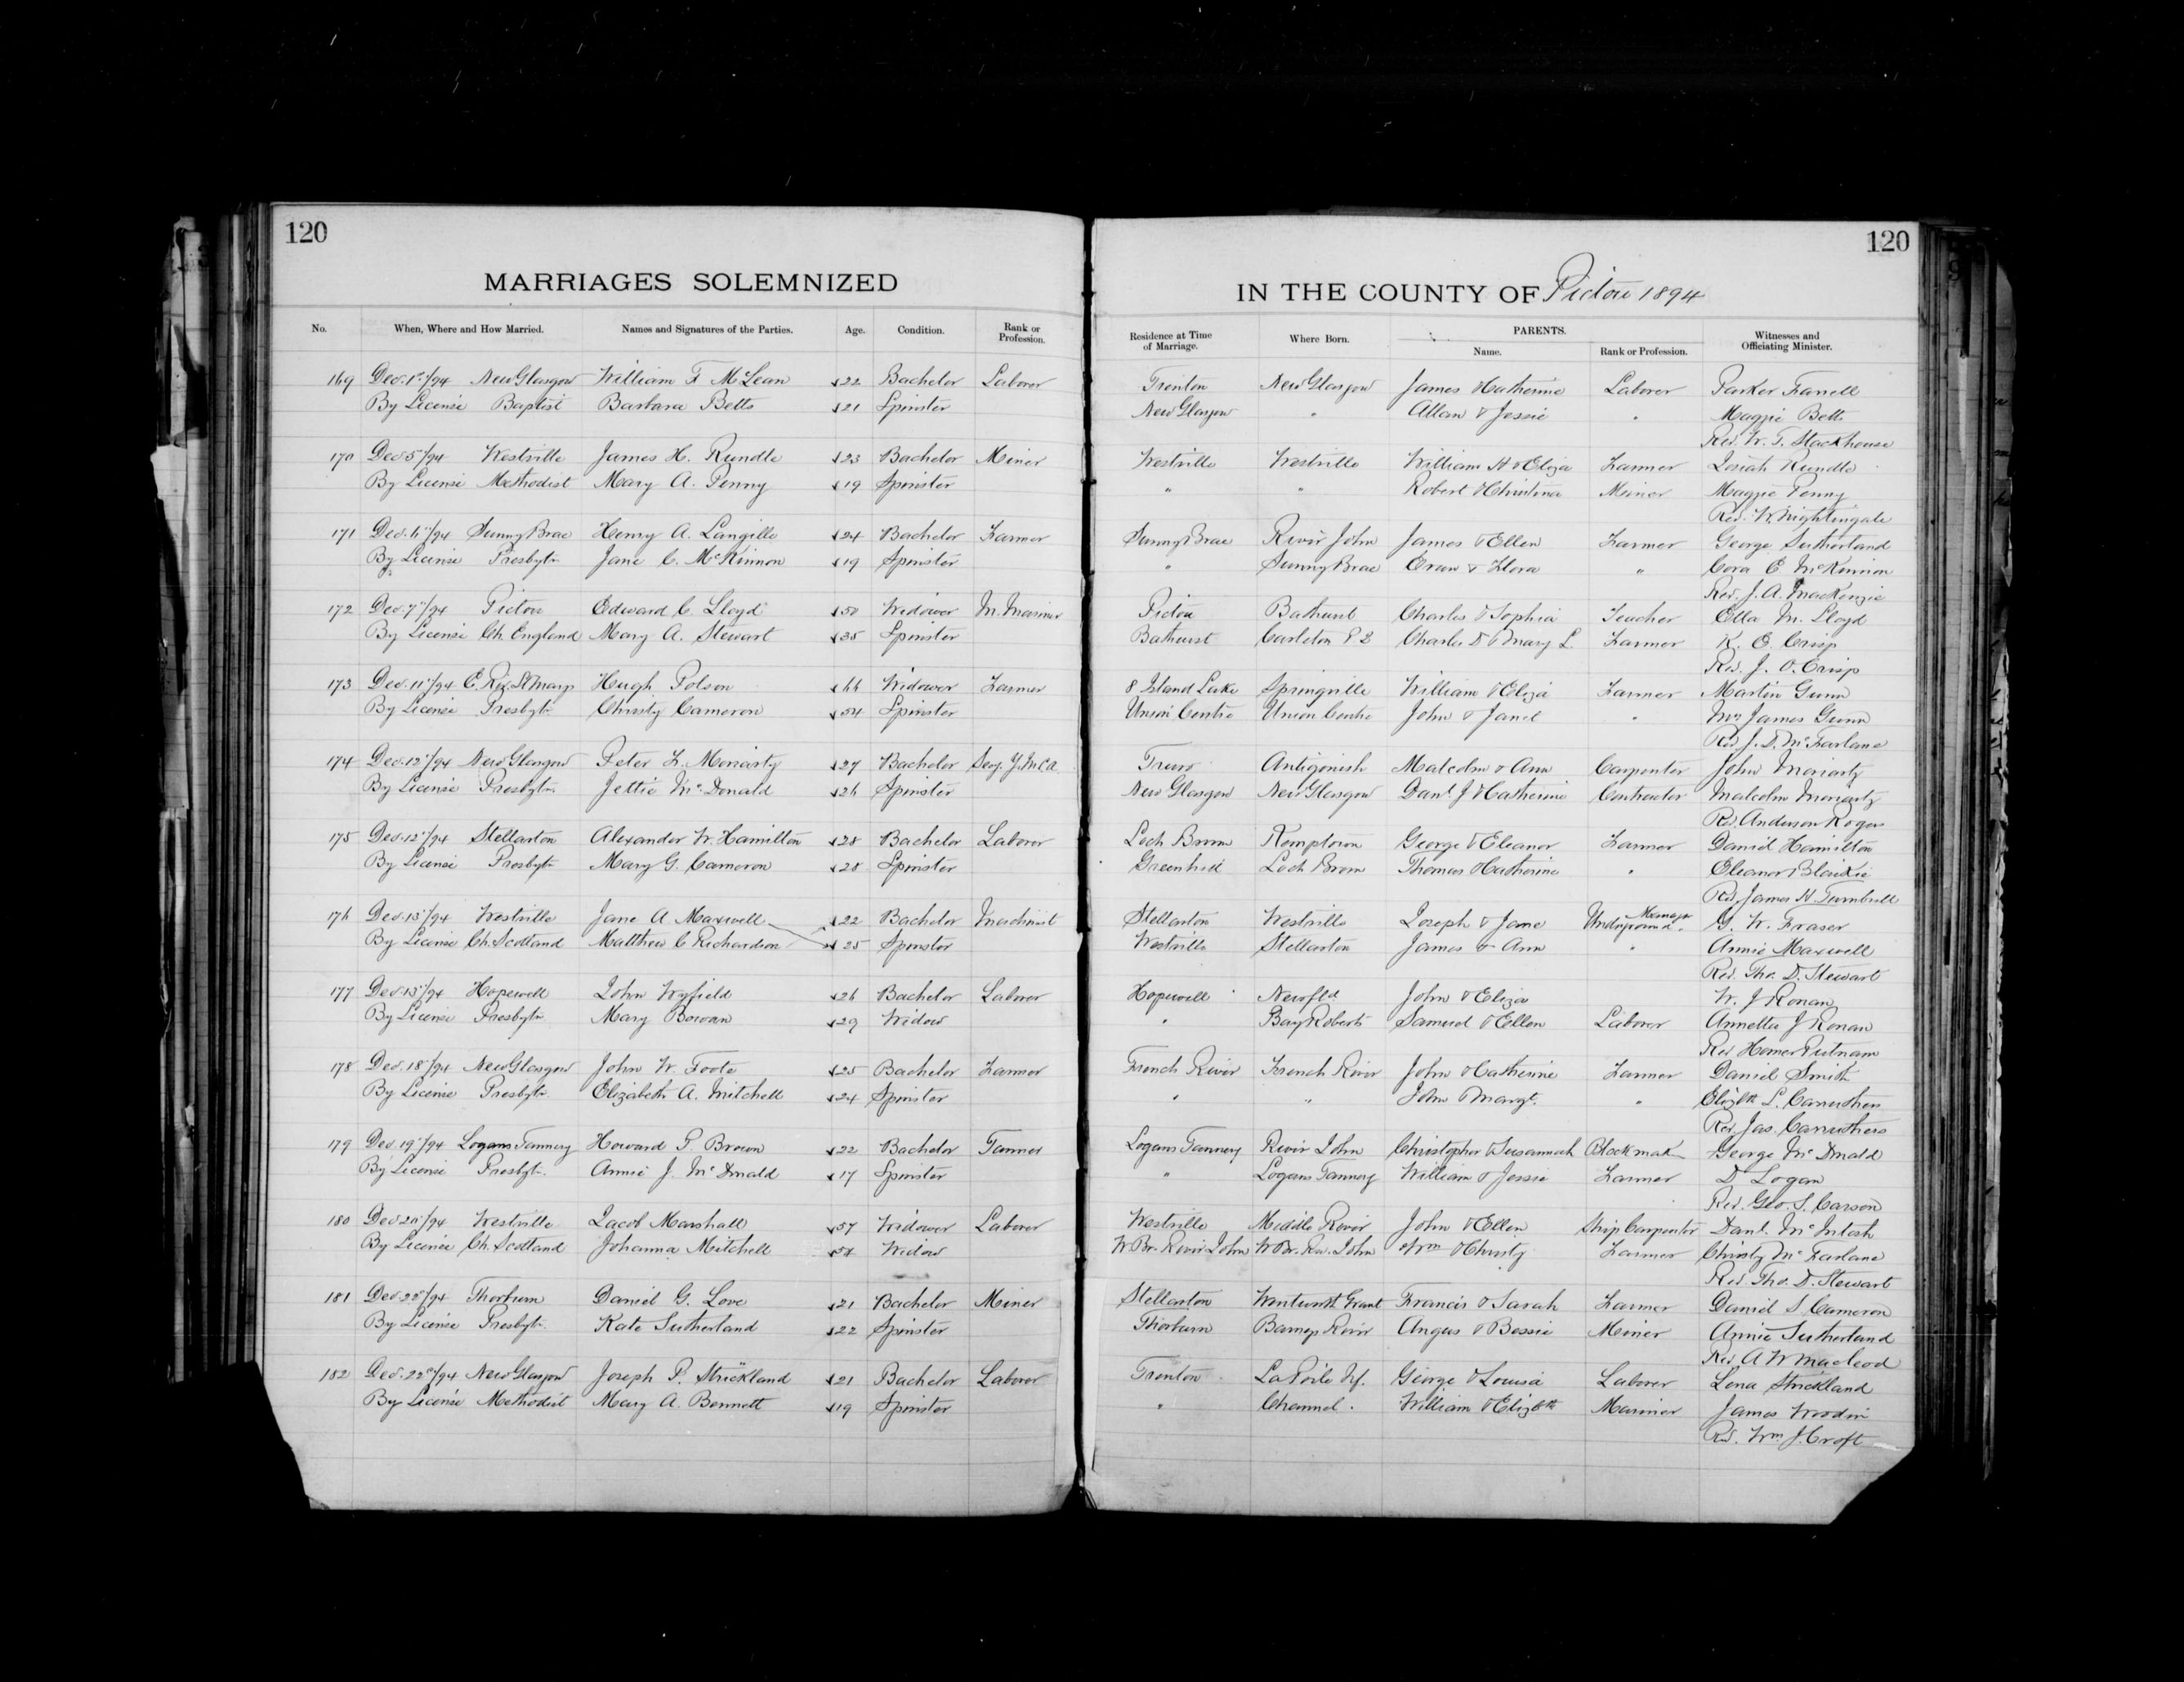 120
MARRIAGES SOLEMNIZED
No. When, Where and How Married. Names and Signatures of the Parties. Age. Condition. Rank or Profession.
169 Dec. 1st/94 New Glasgow William F McLean 22 Bachelor Laborer
By License Baptist Barbara Betts 21 Spinster
170 Dec 5"/94 Westville James H. Rundle 23 Bachelor Miner
By License Methodist Mary A. Penny 19 Spinster
171 Dec. 6"/94 Sunny Brae Henry A. Langille 24 Bachelor Farmer
By License Presbytn Jane C. McKinnon 19 Spinster
172 Dec. 7"/94 Pictou Edward C. Lloyd 50 Widower M. Mariner
By License Ch. England Mary A. Stewart 35 Spinster
173 Dec. 11"/94 E. Riv. St Marys Hugh Polson 66 Widower Farmer
By License Presbytn Christy Cameron 54 Spinster
174 Dec. 12"/94 New Glasgow Peter F. Moriarty 27 Bachelor Secy. Y.M.C.A.
By License Presbytn Jettie McDonald 26 Spinster
175 Dec. 12"/94 Stellarton Alexander W. Hamilton 28 Bachelor Laborer
By License Presbytn Mary G. Cameron 28 Spinster
176 Dec. 13"/94 Westville Jane A Maxwell 22 Bachelor Machinist
By License Ch. Scotland Matthew C Richardson 25 Spinster
177 Dec. 13"/94 Hopewell John Wyfield 26 Bachelor Laborer
By License Presbytn Mary Bowan 29 Widow
178 Dec. 18"/94 New Glasgow John W. Foote 25 Bachelor Farmer
By License Presbytn Elizabeth A. Mitchell 24 Spinster
179 Dec. 19"/94 Logans Tannery Howard P Brown 22 Bachelor Tanner
By License Presbytn Annie J. McDonald 17 Spinster
180 Dec 20"/94 Westville Jacob Marshall 57 Widower Laborer
By License Ch. Scotland Johanna Mitchell Widow
181 Dec 22"/94 Thorburn Daniel G. Love 21 Bachelor Miner
By License Presbytn Kate Sutherland 22 Spinster
182 Dec. 22"/94 New Glasgow Joseph P. Strickland 21 Bachelor Laborer
By License Methodist Mary A. Bennett 19 Spinster
120
IN THE COUNTY OF Pictou 1894
Residence at Time of Marriage. Where Born. PARENTS. Name. Rank or Profession. Witnesses and Officiating Minister.
Trenton New Glasgow James & Catherine Laborer Parker Farrell
New Glasgow " Allan & Jessie " Maggie Betts
Rev. W. T. Stackhouse
Westville Westville William H & Eliza Farmer Josiah Rundle
" " Robert & Christina Miner Maggie Penny
Rev. W. Nightingale
Sunny Brae River John James & Ellen Farmer George Sutherland
" Sunny Brae Evan & Flora " Cora E McKinnon
Rev. J. A. MacKenzie
Pictou Bathurst Charles & Sophia Teacher Ella M. Lloyd
Bathurst Carleton P.Q Charles D & Mary L. Farmer K. E. Crisp
Rev. J. O. Crisp
8 Island Lake Springville William & Eliza Farmer Martin Gunn
Union Centre Union Centre John & Janet " Mrs James Gunn
Rev J. D. McFarlane
Truro Antigonish Malcolm & Ann Carpenter John Moriarty
New Glasgow New Glasgow Danl J & Catherine Contractor Malcolm Moriarty
Rev. Anderson Rogers
Loch Broom Kemptown George & Eleanor Farmer Daniel Hamilton
Greenhill Loch Broom Thomas & Catherine " Eleanor Blaikie
Rev. James H. Turnbull
Stellarton Westville Joseph & Jane Underground Manager G. W. Fraser
Westville Stellarton James & Ann " Annie Maxwell
Rev. Tho. D. Stewart
Hopewell Newfld John & Eliza W. J Ronan
" Bay Roberts Samuel & Ellen Laborer Annetta J Ronan
Rev Homer Putnam
French River French River John & Catherine Farmer Daniel Smith
" " John & Margt. " Elizbth L. Carruthers
Rev. Jas. Carruthers
Logans Tannery River John Christopher & Susannah Blockmak George McDonald
" Logans Tannery William & Jessie Farmer D Logan
Rev. Geo. S. Carson
Westville Middle River John & Ellen Ship Carpenter Danl. McIntosh
W Br. River John W Br. Riv. John Wm & Christy Farmer Christy McFarlane
Rev. Tho. D. Stewart
Stellarton Wentworth Grant Francis & Sarah Farmer Daniel S Cameron
Thorburn Barneys River Angus & Bessie Miner Annie Sutherland
Rev. A W Macleod
Trenton La Poile Nf. George & Louisa Laborer Lena Strickland
" Channel. William & Elizbth Mariner James Woodin
Rev. Wm J. Croft